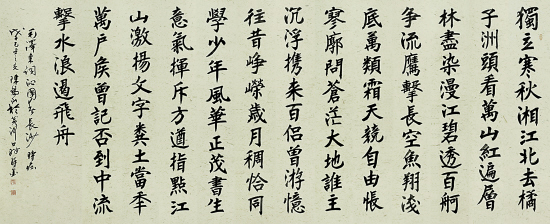 獨立寒秋湘江北去橘
子洲頭看萬山紅遍層
林盡染漫江碧透百舸
争流鷹擊長空魚翔淺
底萬類霜天競自由悵
寥廓問蒼茫大地誰主
沉浮携来百侣曾游憶
往昔峥嶸歲月稠恰同
學少年風華正茂書生
意氣揮斥方遒指點江
山激楊文字糞土當秊
萬户侯曾記否到中流
擊水浪遏飛舟
毛澤東詞沁園春長沙